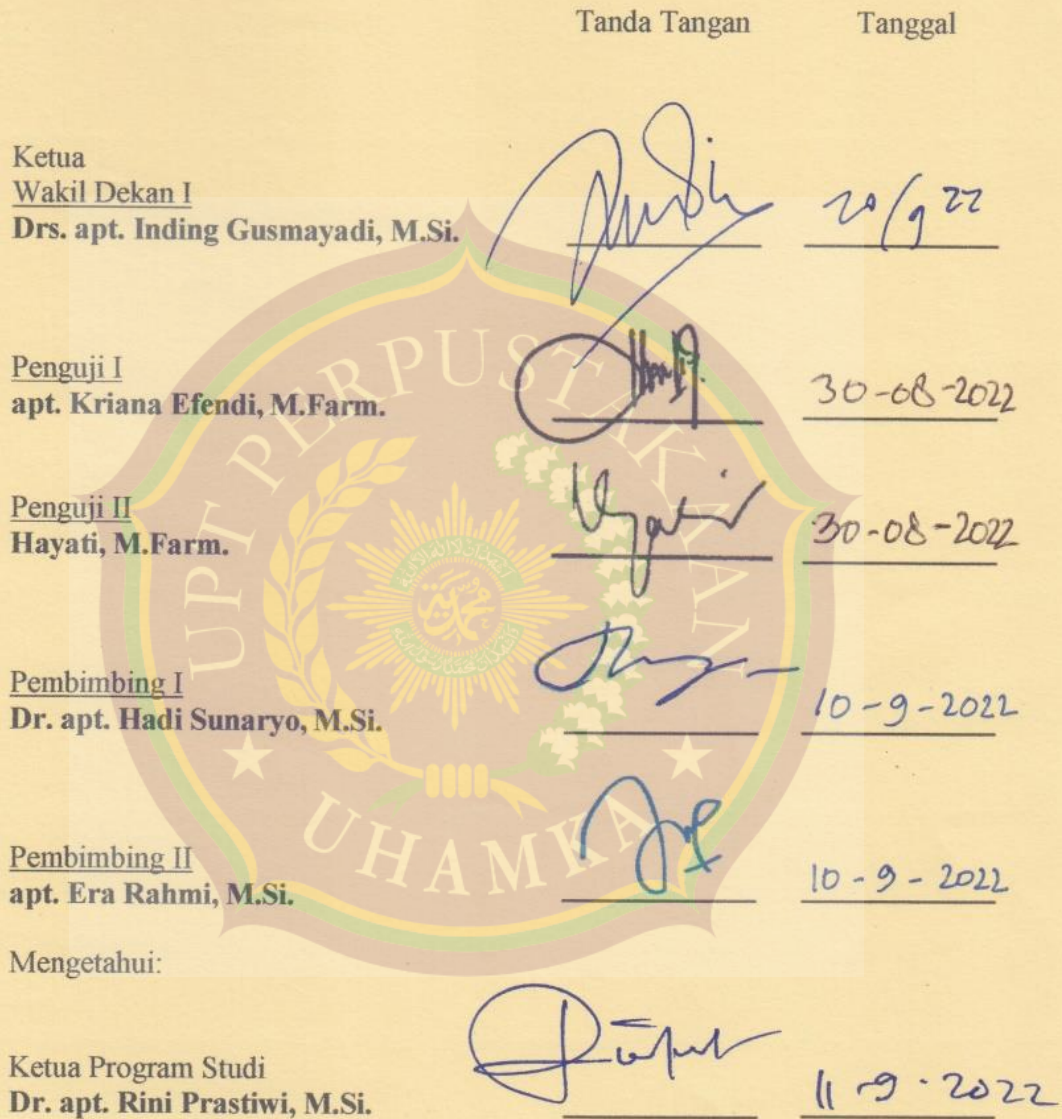 Tanda Tangan Tanggal
Ketua
Wakil Dekan I
Drs. apt. Inding Gusmayadi, M.Si. 20/9 22
Penguji I
apt. Kriana Efendi, M.Farm. 30-08-2022
Penguji II
Hayati, M.Farm. 30-08-2022
Pembimbing I
Dr. apt. Hadi Sunaryo, M.Si. 10-9-2022
Pembimbing II
apt. Era Rahmi, M.Si. 10-9-2022
Mengetahui:
Ketua Program Studi
Dr. apt. Rini Prastiwi, M.Si. 11-9-2022
UPT PERPUSTAKAAN
UHAMKA